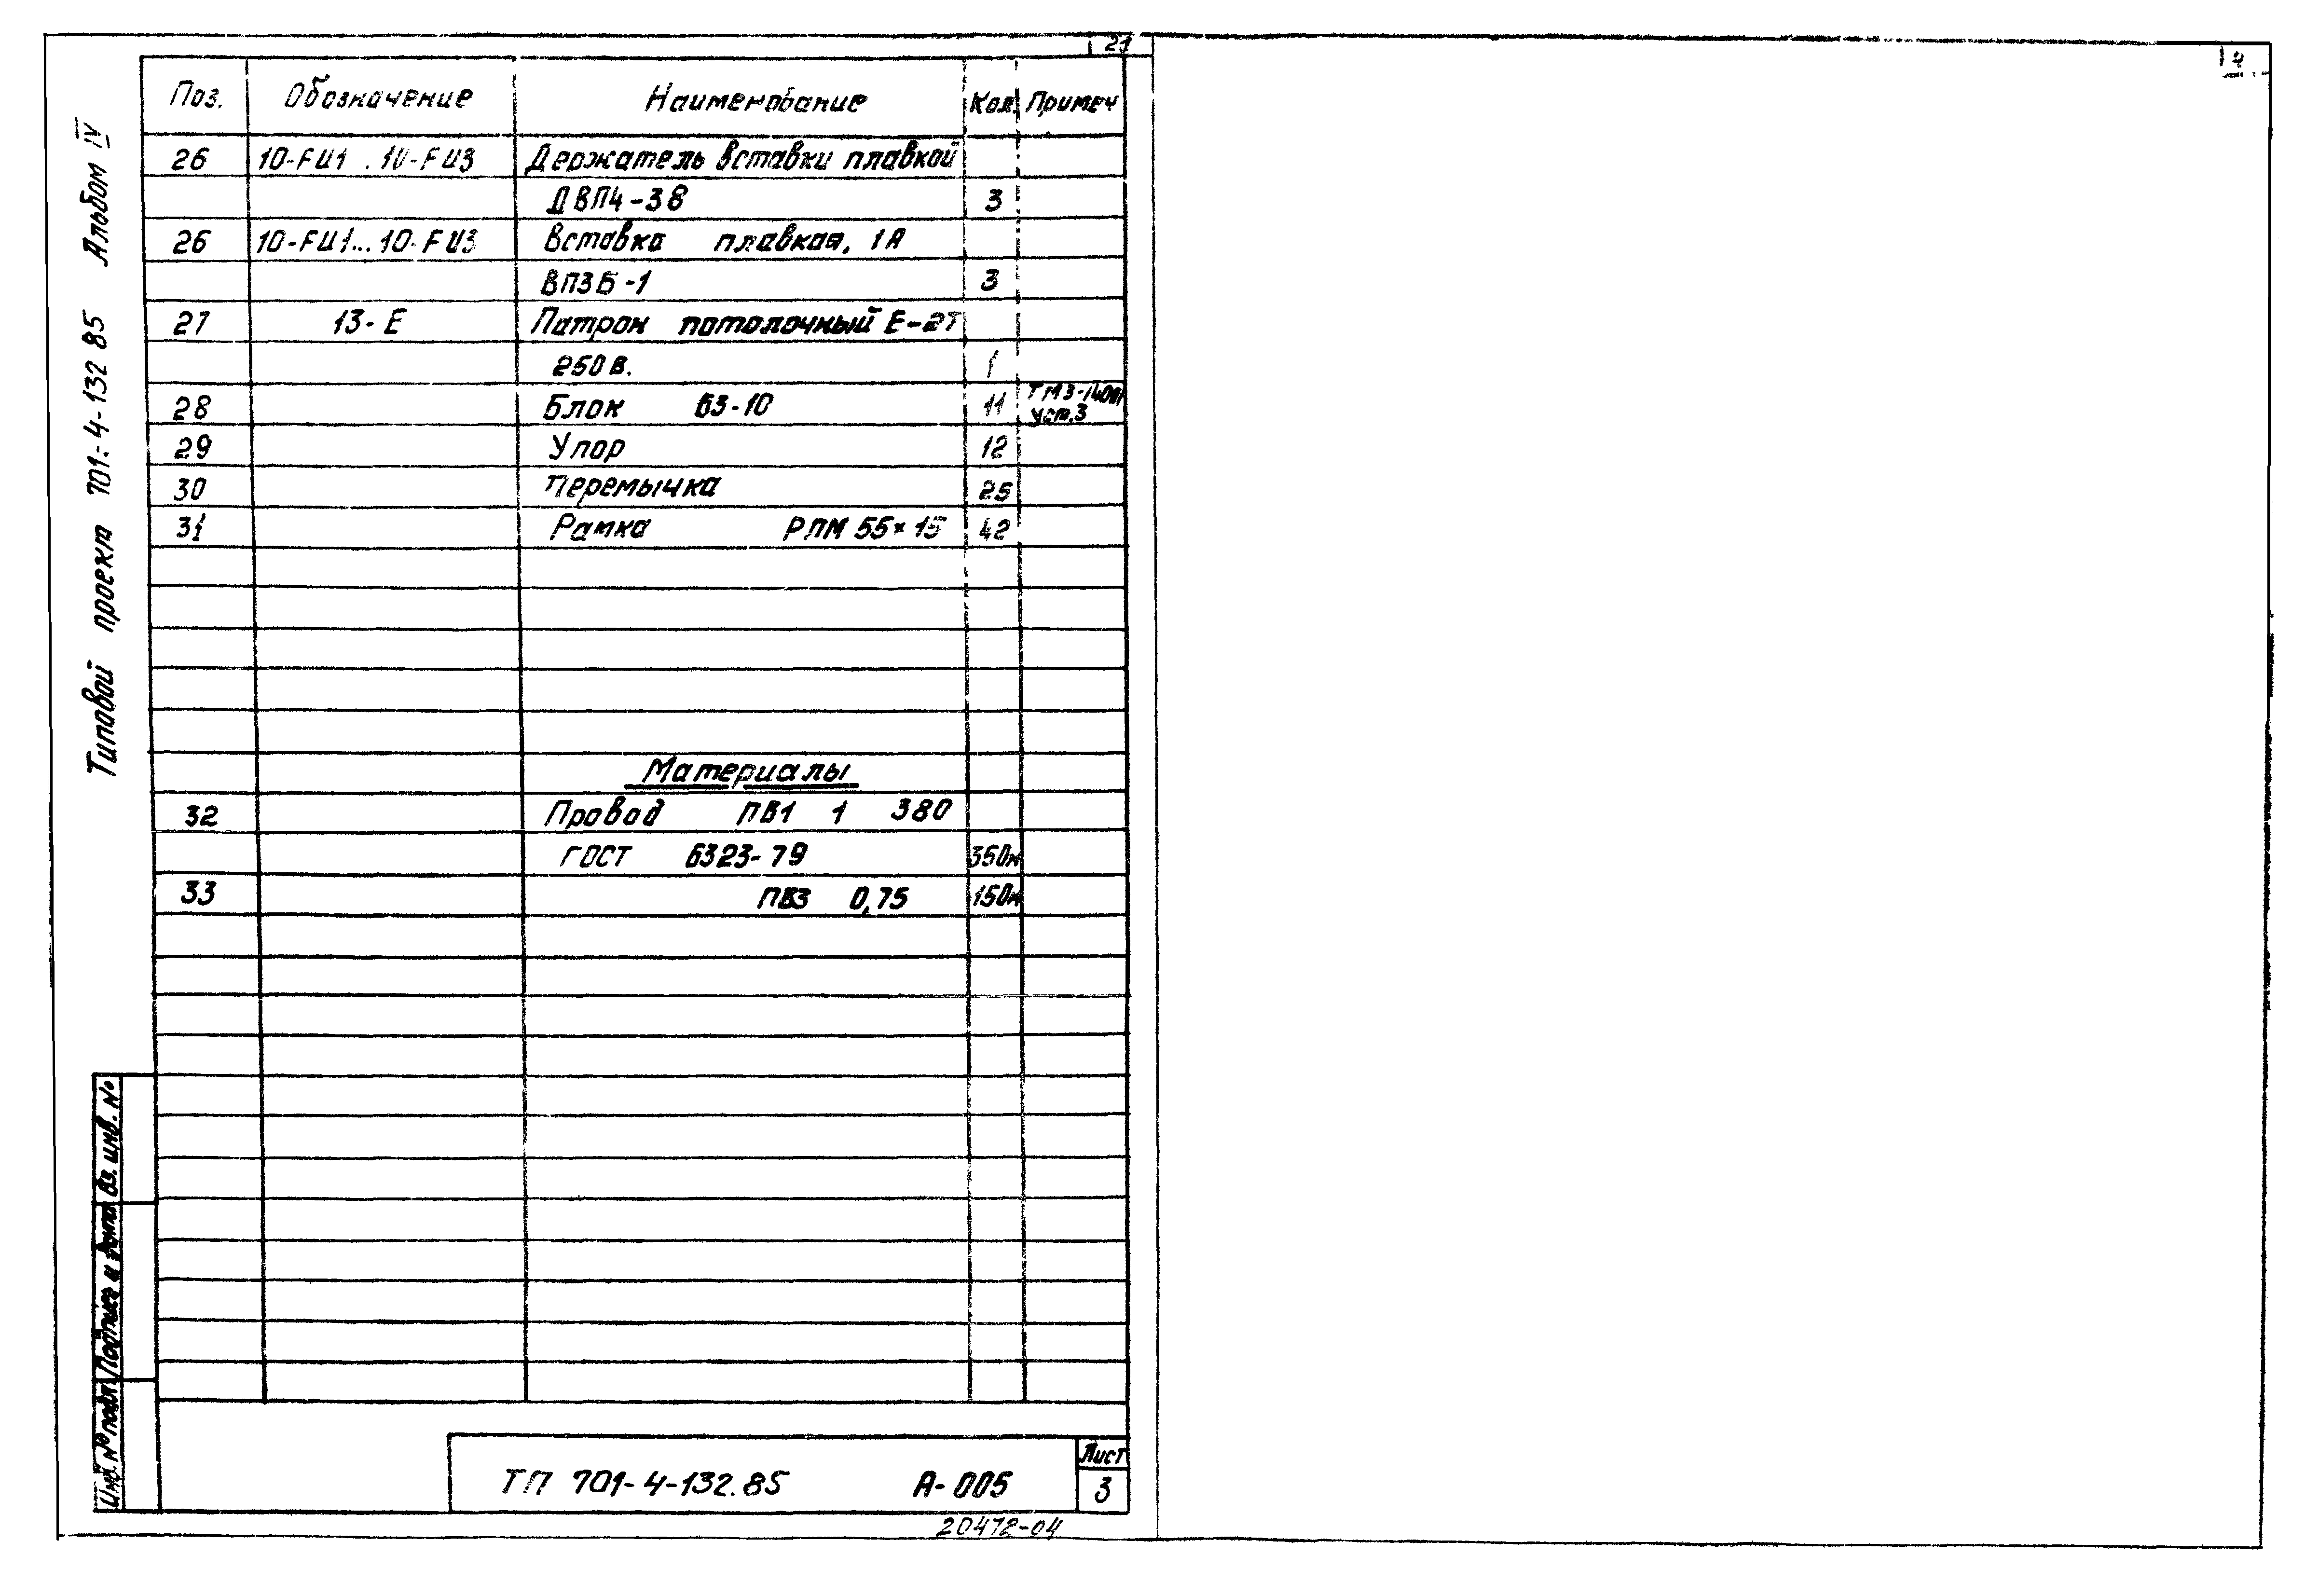 21
Поз. Обозначение Наименование Кол. Примеч
26 10-FU1 . 10-FU3 Держатель вставки плавкой
ДВП4-38 3
26 10-FU1...10-FU3 Вставка плавкая, 1А
ВП3Б-1 3
27 13-Е Патрон потолочный Е-27
250 в. 1
28 Блок БЗ-10 11
уст.3
29 Упор 12
30 Перемычка 25
31 Рамка РПМ 55×15 42
Материалы
32 Провод ПВ1 1 380
ГОСТ 6323-79 350м
33 ПВ3 0,75 150м
Типовой проект 701-4-132 85 Альбом IV
Вз. инв. №
Подпись и дата
Инв. № подл.
ТП 701-4-132.85 А-005
Лист
3
20472-04